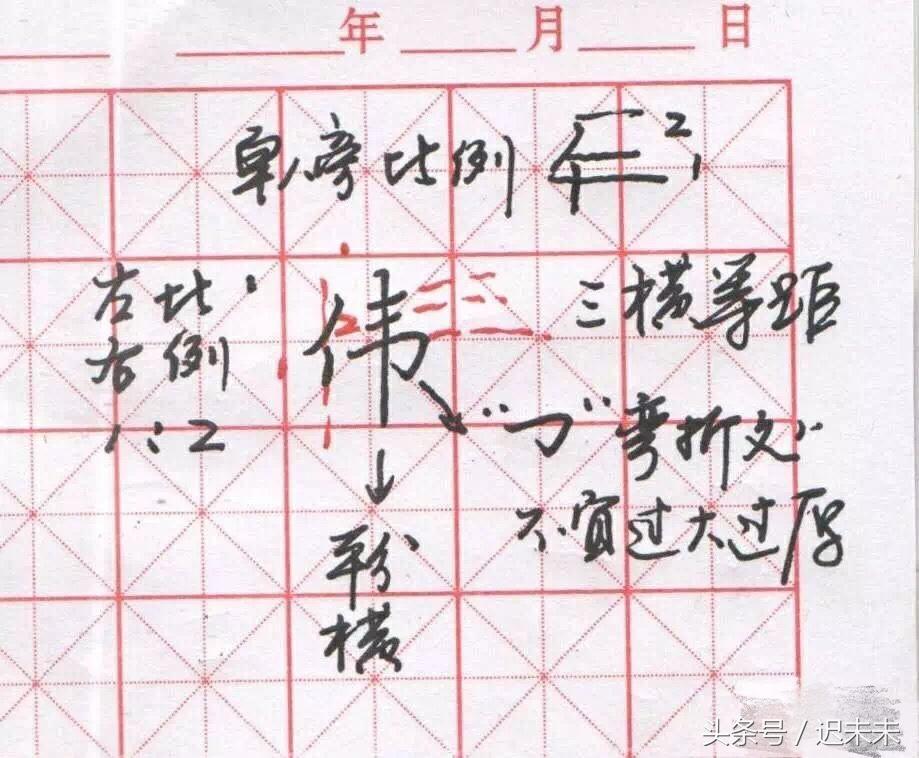 年 月 日
单旁比例 2 1
左比
右例
1:2
伟
三横等距
"㇆"弯折处
不宜过大过厚
平分
横
头条号 / 迟未未